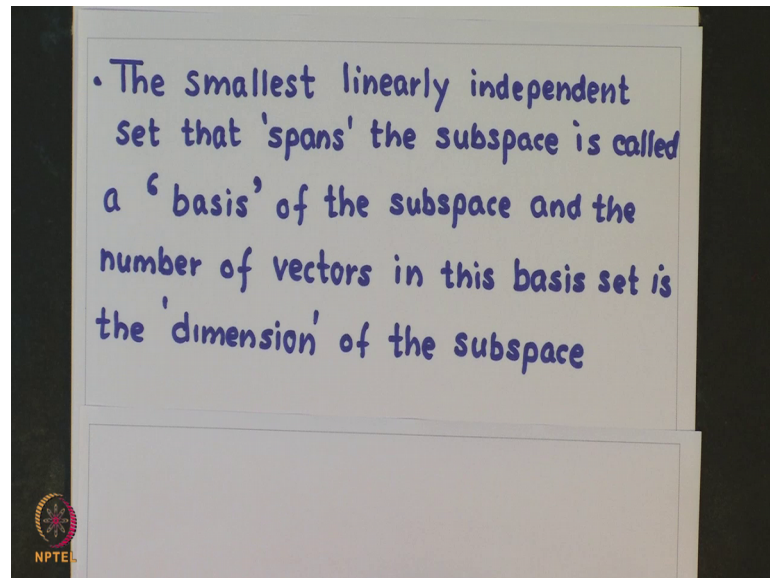 . The smallest linearly independent
set that 'spans' the subspace is called
a 'basis' of the subspace and the
number of vectors in this basis set is
the 'dimension' of the subspace
NPTEL